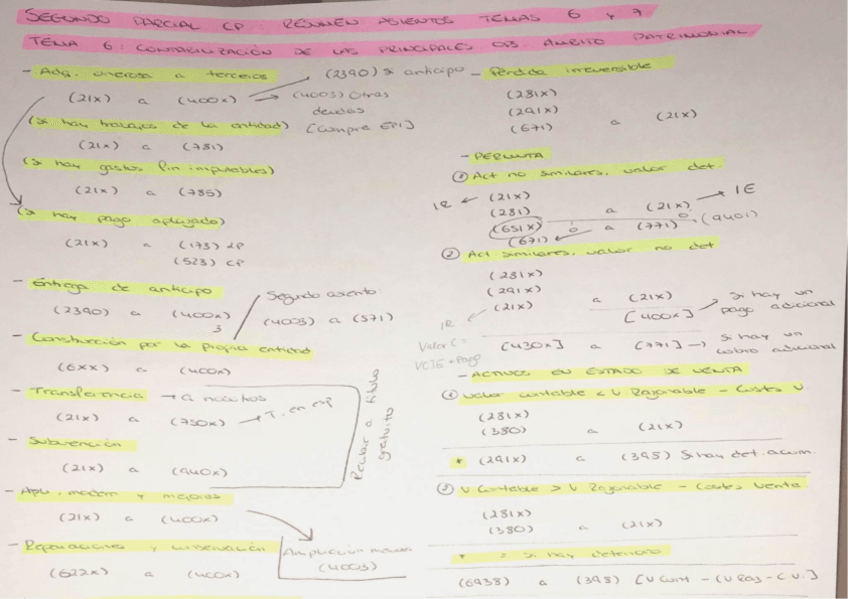 SEGUNDO PARCIAL CP RESUMEN ASIENTOS TEMAS 6 y 7
TEMA 6: CONTABILIZACIÓN DE LAS PRINCIPALES OP. ÁMBITO PATRIMONIAL
- Adq. onerosa a terceros
(2390) si anticipo
(21x) a (400x) → (4003) Otras deudas
[compra EPI]
(si hay trabajos de la entidad)
(21x) a (781)
(si hay gastos fin imputables)
(21x) a (785)
(si hay pago aplazado)
(21x) a (173) LP
(523) CP
- Entrega de anticipo
(2390) a (400x)
3
Segundo asiento
(4003) a (571)
- Construcción por la propia entidad
(6xx) a (400x)
- Transferencia → a nosotros
(21x) a (750x) → T. en esp
- Subvención
(21x) a (940x)
Recibir a título gratuito
- Apli, modern y mejoras
(21x) a (400x)
- Reparaciones y conservación
(622x) a (400x)
Ampliación
(4003)
- Pérdida irreversible
(281x)
(291x)
(671) a (21x)
- PERMUTA
① Act no similares, valor det.
IR ← (21x)
(281) a (21x) → IE
(651x) ó a (771) ó (9401)
(671)
② Act similares, valor no det
(281x)
(291x)
IR ← (21x) a (21x)
[400x] → Si hay un pago adicional
Valor C =
VCIE + Pago
[430x] a (771] → Si hay un cobro adicional
- ACTIVOS EN ESTADO DE VENTA
① Valor contable < V Razonable - Costes V
(281x)
(380) a (21x)
* (291x) a (395) Si hay det. acum.
② V Contable > V Razonable - Costes Venta
(281x)
(380) a (21x)
* = si hay deterioro
(6938) a (398) [V Cont - (V Raz - C.V.]